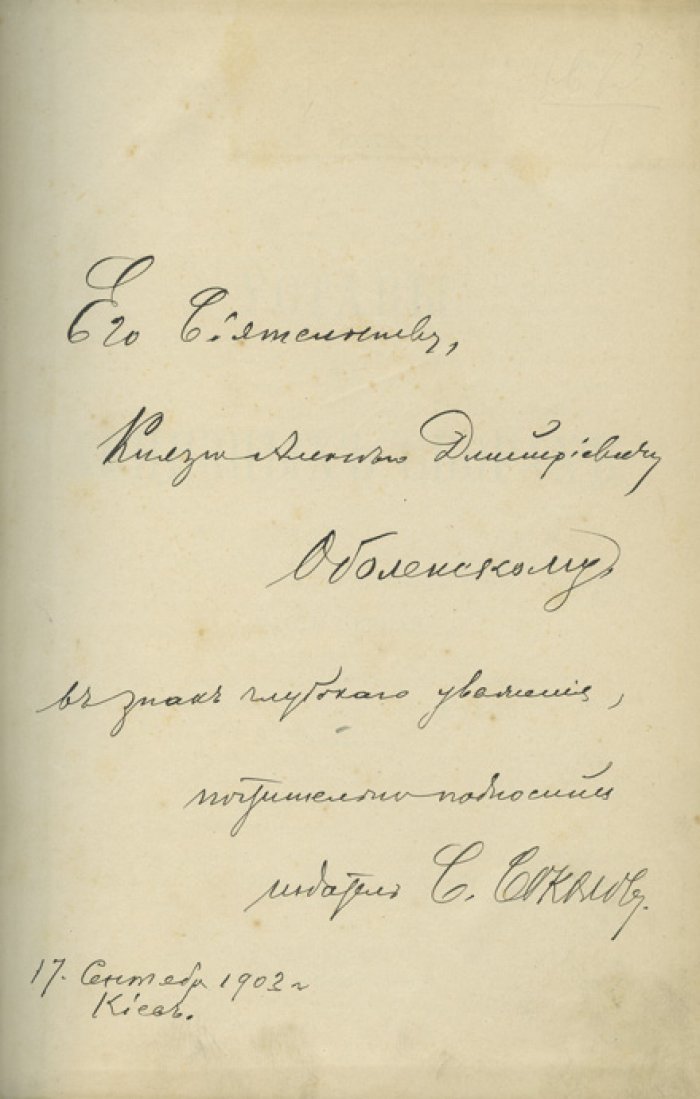 Его Сіятельству,
Князю Алексѣю Дмитріевичу
Оболенскому,
въ знакъ глубокаго уваженія,
почтительно подноситъ
издатель С. Соколовъ.
17. Сентября 1902 г
Кіевъ.